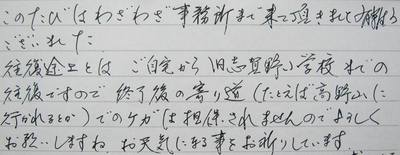 このたびはわざわざ事務所まで来て頂きまして有難う
ございました
往復途上とは ご自宅から旧志賀野小学校までの
往復ですので 終了後の寄り道（たとえば高野山に
行かれるとか）でのケガは担保されませんのでよろしく
お願いしますね お天気になる事をお祈りしています